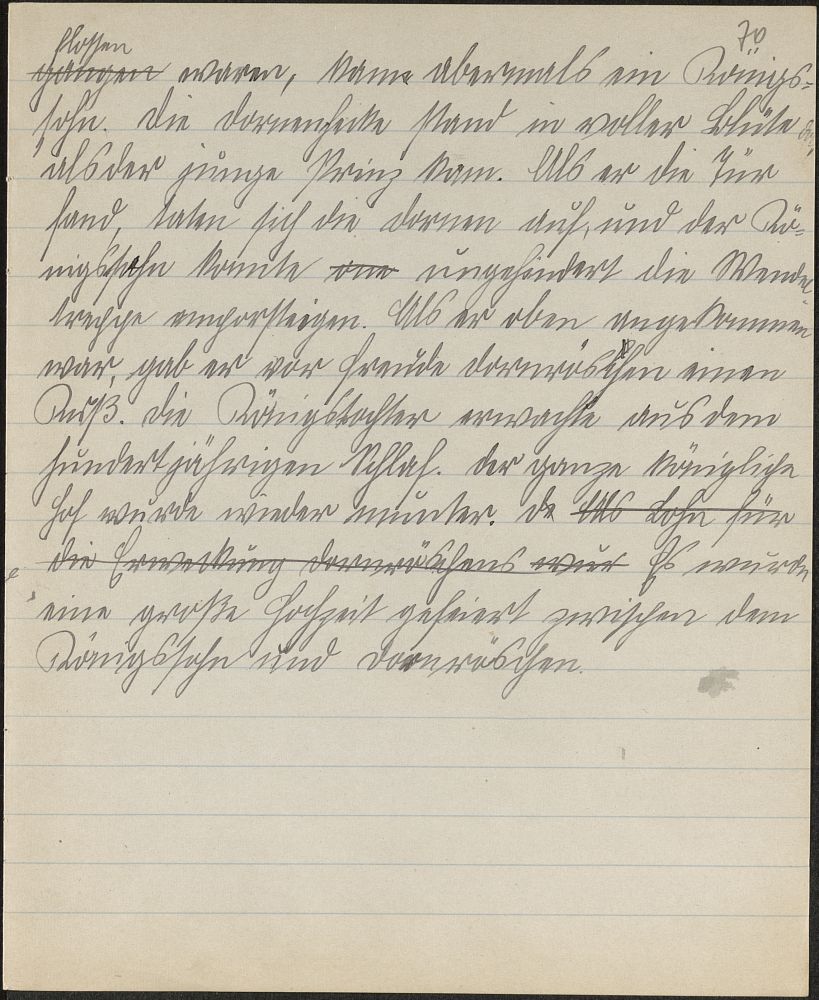 70
flossen
gangen waren, kam abermals ein Königs-
sohn. Die Dornenhecke stand in voller Blüte
als der junge Prinz kam. Als er die Tür
fand, taten sich die Dornen auf, und der Kö-
nigssohn konnte one ungehindert die Wendel
treppe emporsteigen. Als er oben angekommen
war, gab er vor Freude Dornröschen einen
Kuß. Die Königstochter erwachte aus dem
hundertjährigen Schlaf. Der ganze königliche
Hof wurde wieder munter. De Als Lohn für
die Erweckung Dornröschens wur Es wurde
eine große Hochzeit gefeiert zwischen dem
Königssohn und Dornröschen.